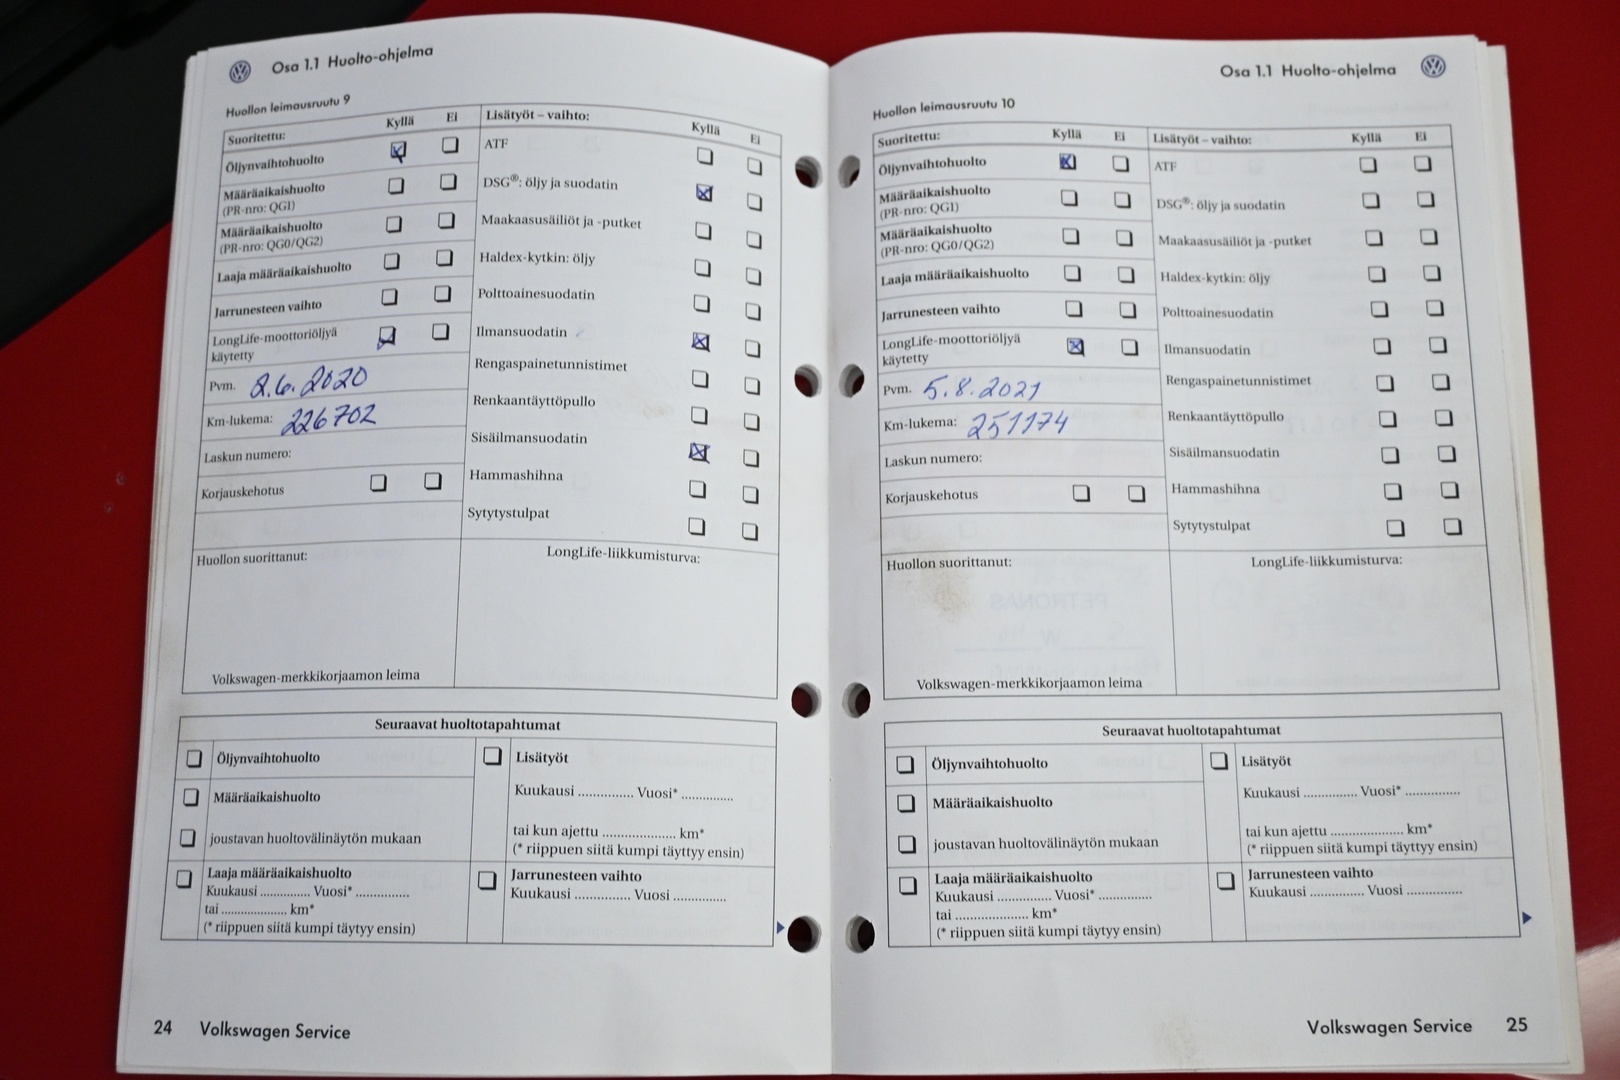 Osa 1.1 Huolto-ohjelma
Huollon leimausruutu 9
Suoritettu: Kyllä Ei
Öljynvaihtohuolto
Määräaikaishuolto
(PR-nro: QG1)
Määräaikaishuolto
(PR-nro: QG0/QG2)
Laaja määräaikaishuolto
Jarrunesteen vaihto
LongLife-moottoriöljyä
käytetty
Pvm. 2.6.2020
Km-lukema: 226702
Laskun numero:
Korjauskehotus
Lisätyöt – vaihto: Kyllä Ei
ATF
DSG®: öljy ja suodatin
Maakaasusäiliöt ja -putket
Haldex-kytkin: öljy
Polttoainesuodatin
Ilmansuodatin
Rengaspainetunnistimet
Renkaantäyttöpullo
Sisäilmansuodatin
Hammashihna
Sytytystulpat
Huollon suorittanut:
Volkswagen-merkkikorjaamon leima
LongLife-liikkumisturva:
Seuraavat huoltotapahtumat
Öljynvaihtohuolto
Määräaikaishuolto
joustavan huoltovälinäytön mukaan
Laaja määräaikaishuolto
Kuukausi .............. Vuosi* ..............
tai .................... km*
(* riippuen siitä kumpi täytyy ensin)
Lisätyöt
Kuukausi .............. Vuosi* ..............
tai kun ajettu .................... km*
(* riippuen siitä kumpi täyttyy ensin)
Jarrunesteen vaihto
Kuukausi .............. Vuosi ..............
24 Volkswagen Service
Osa 1.1 Huolto-ohjelma
Huollon leimausruutu 10
Suoritettu: Kyllä Ei
Öljynvaihtohuolto
Määräaikaishuolto
(PR-nro: QG1)
Määräaikaishuolto
(PR-nro: QG0/QG2)
Laaja määräaikaishuolto
Jarrunesteen vaihto
LongLife-moottoriöljyä
käytetty
Pvm. 5.8.2021
Km-lukema: 251174
Laskun numero:
Korjauskehotus
Lisätyöt – vaihto: Kyllä Ei
ATF
DSG®: öljy ja suodatin
Maakaasusäiliöt ja -putket
Haldex-kytkin: öljy
Polttoainesuodatin
Ilmansuodatin
Rengaspainetunnistimet
Renkaantäyttöpullo
Sisäilmansuodatin
Hammashihna
Sytytystulpat
Huollon suorittanut:
Volkswagen-merkkikorjaamon leima
LongLife-liikkumisturva:
Seuraavat huoltotapahtumat
Öljynvaihtohuolto
Määräaikaishuolto
joustavan huoltovälinäytön mukaan
Laaja määräaikaishuolto
Kuukausi .............. Vuosi* ..............
tai .................... km*
(* riippuen siitä kumpi täytyy ensin)
Lisätyöt
Kuukausi .............. Vuosi* ..............
tai kun ajettu .................... km*
(* riippuen siitä kumpi täyttyy ensin)
Jarrunesteen vaihto
Kuukausi .............. Vuosi ..............
Volkswagen Service 25